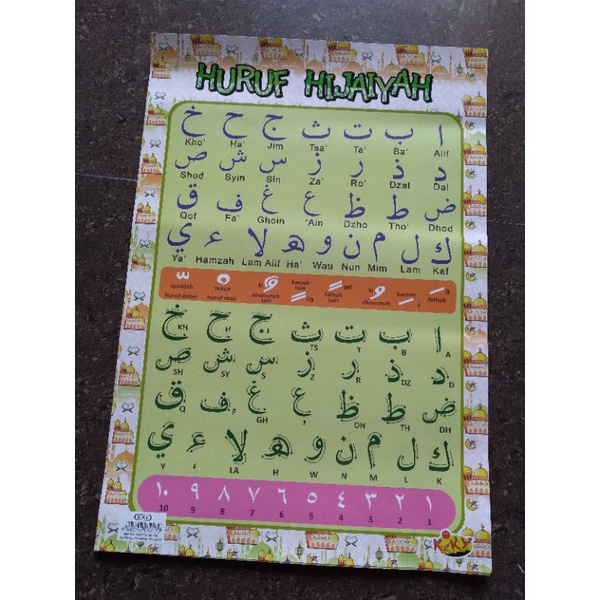 HURUF HIJAIYAH
ا ب ت ث ج ح خ
Kho' Ha' Jim Tsa' Ta' Ba' Alif
د ذ ر ز س ش ص
Shod Syin Sin Za' Ro' Dzal Dal
ض ط ظ ع غ ف ق
Qof Fa' Ghoin 'Ain Dzho Tho' Dhod
ك ل م ن و ه لا ء ي
Ya' Hamzah Lam Alif Ha' Wau Nun Mim Lam Kaf
syaddah sukun dhommah tain kasrah tain fathah tain dhommah kasrah fathah
huruf dobel huruf mati
ا ب ت ث ج ح خ
KH H J TS T B A
د ذ ر ز س ش ص
SH SY S Z R DZ D
ض ط ظ ع غ ف ق
Q F GH ' DH TH DH
ك ل م ن و ه لا ء ي
Y ' LA H W N M L K
١ ٢ ٣ ٤ ٥ ٦ ٧ ٨ ٩ ١٠
10 9 8 7 6 5 4 3 2 1